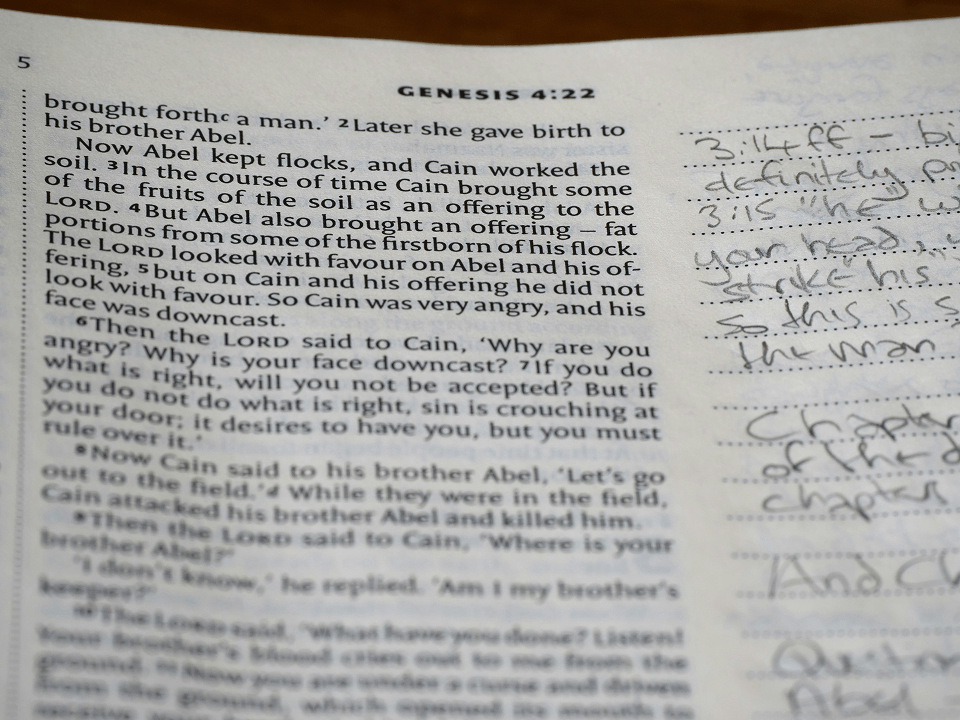 5
GENESIS 4:22
brought forthc a man.' 2Later she gave birth to
his brother Abel.
Now Abel kept flocks, and Cain worked the
soil. 3In the course of time Cain brought some
of the fruits of the soil as an offering to the
LORD. 4But Abel also brought an offering – fat
portions from some of the firstborn of his flock.
The LORD looked with favour on Abel and his of-
fering, 5but on Cain and his offering he did not
look with favour. So Cain was very angry, and his
face was downcast.
6Then the LORD said to Cain, 'Why are you
angry? Why is your face downcast? 7If you do
what is right, will you not be accepted? But if
you do not do what is right, sin is crouching at
your door; it desires to have you, but you must
rule over it.'
8Now Cain said to his brother Abel, 'Let's go
out to the field.'d While they were in the field,
Cain attacked his brother Abel and killed him.
9Then the LORD said to Cain, 'Where is your
brother Abel?'
'I don't know,' he replied. 'Am I my brother's
keeper?'
10The LORD said, 'What have you done? Listen!
Your brother's blood cries out to me from the
ground. 11Now you are under a curse and driven
from the ground, which opened its mouth to
3:14ff –
definitely
3:15 "he"
your head,
strike his
so this is
the man
Chapter
of the
chapter
And
Abel